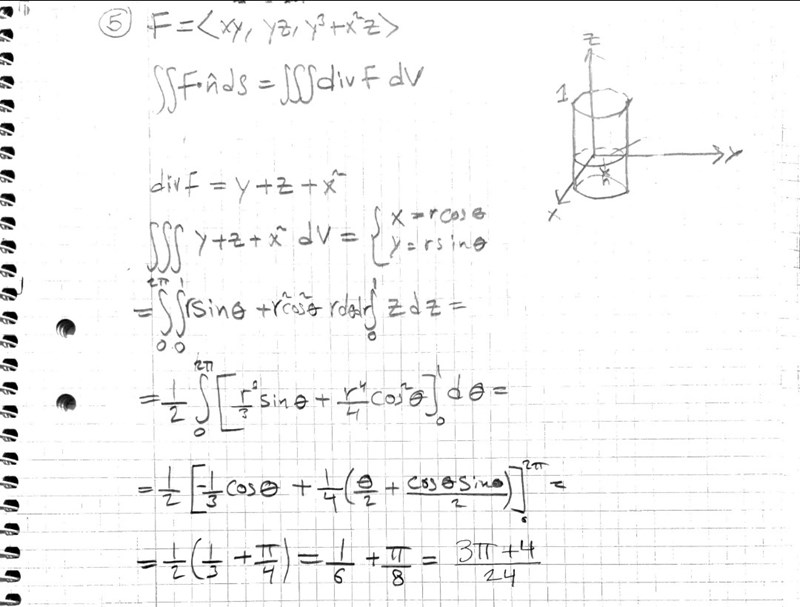 ⑤ F = <xy, yz, y³+x²z>
∬F·n̂ ds = ∭div F dV
z
1
y
x
div F = y+z+x²
∭ y+z+x² dV = { x = rcosθ
y = rsinθ
= ∫₀^2π ∫₀^1 rsinθ + r²cos²θ rdθdr ∫₀^1 z dz =
= 1/2 ∫₀^2π [r³/3 sinθ + r⁴/4 cos²θ]₀^1 dθ =
= 1/2 [-1/3 cosθ + 1/4 (θ/2 + cosθsinθ/2)]₀^2π =
= 1/2 (1/3 + π/4) = 1/6 + π/8 = 3π+4/24